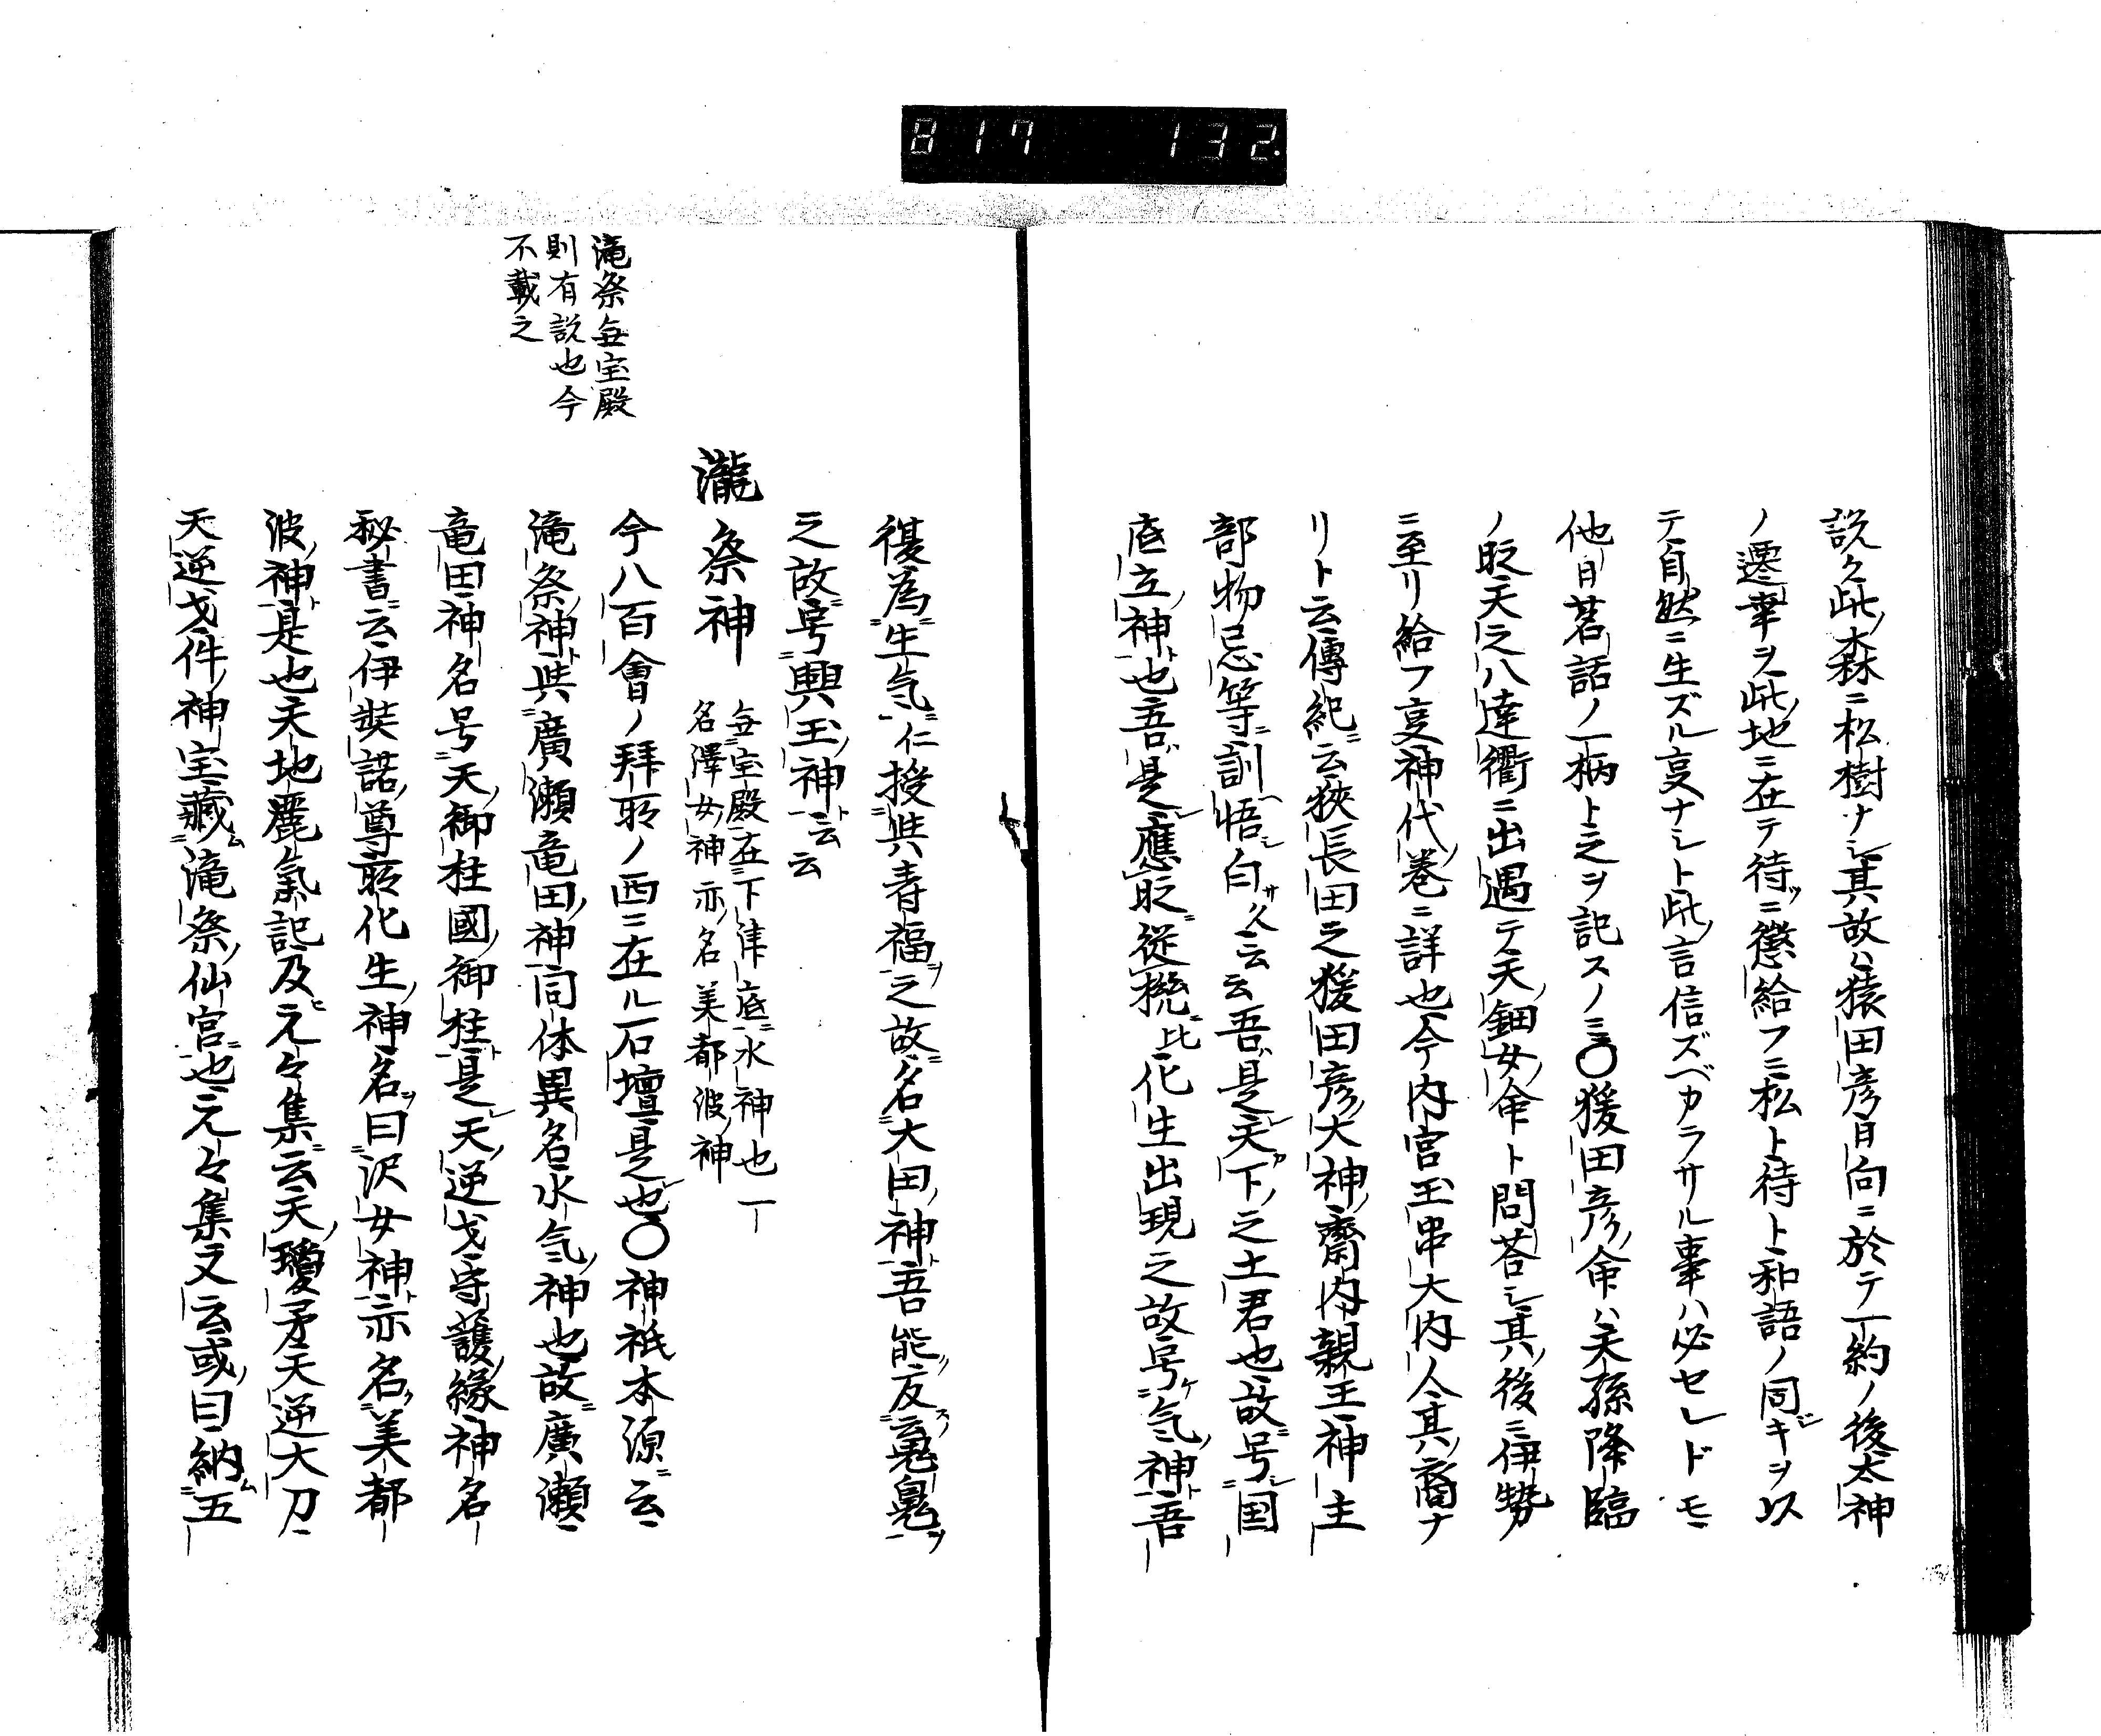 817 132.
説ク此森ニ松樹ナシ其故ハ猿田彦日向ニ於テ一約ノ後太神
ノ遷幸ヲ此地ニ在テ待ツニ懲給フニ松ト待ト和語ノ同キヲ以
テ自然ニ生ズル叓ナシト此言信ズベカラサル事ハ必セレドモ
他日茗話ノ一柄ト之ヲ記スノミ〇猨田彦命ハ天孫降臨
ノ眨天之八達衢ニ出遇テ天鈿女命ト問荅シ其後ニ伊勢
ニ至リ給フ叓神代巻ニ詳也今内宮玉串大内人其裔ナ
リト云傳紀云狹長田之猨田彦大神齋内親王神主
部物忌等訓悟白久云云吾是天下之土君也故号国
底立神也吾是應眨從機比化生出現之故号気神吾
復為生気仁授與寿福之故名大田神吾能反云鬼
之故号興玉神云云
瀧祭神 無宝殿在下津底水神也一
名澤女神亦名美都波神
今八百會ノ拜所ノ西ニ在ル石壇是也〇神祇本源云
滝祭神與廣瀬竜田神同体異名水気神也故廣瀬
竜田神名号天御柱國御柱是天逆戈守護縁神名
秘書云伊弉諾尊所化生神名曰沢女神亦名美都
波神是也天地麗氣記及元々集云天瓊矛天逆大刀
天逆戈件神宝藏滝祭仙宮也元々集又云或曰納五
滝祭無宝殿
則有説也今
不載之